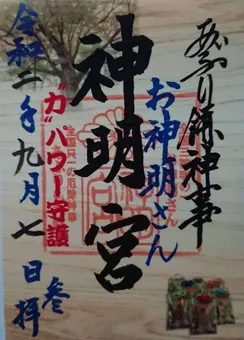 あぶり餅神事
お神明さん
神明宮
"力"パワー守護
令和二年九月七日参拝